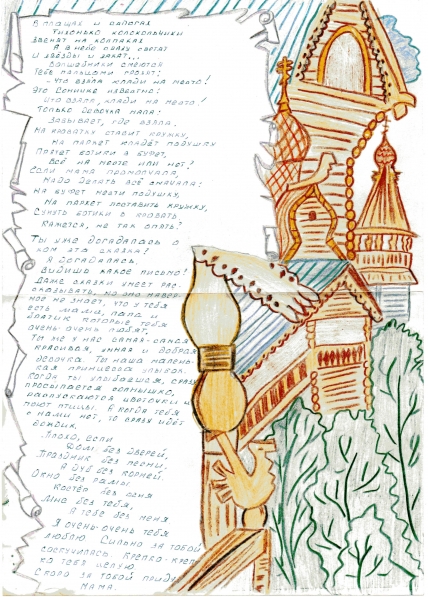 В плащах и сапогах
Тихонько колокольчики
Звенят на колпаках
А в небо сразу светят
И звёзды и закат...
Волшебники смеются
Тебе пальцами грозят:
- Что взяла клади на место!
Это Сонечке известно:
Что взяла, клади на место!
Только девочка мала:
Забывает, где взяла.
На кроватку ставит кружку,
На паркет кладёт подушку
Прячет ботинки в буфет,
Всё на месте или нет?
Если мама промолчала,
Надо делать всё сначала:
На буфет нести подушку,
На паркет поставить кружку,
Сунуть ботики в кровать,
Кажется, не так опять?
Ты уже догадалась о
ком эта сказка?
Я догадалась,
Видишь какое письмо!
Даже сказки умеет рас-
сказывать, но она навер-
ное не знает, что у тебя
есть мама, папа и
братик которые тебя
очень-очень любят,
Ты же у нас самая-самая
красивая, умная и добрая
девочка. Ты наша малень-
кая принцесса улыбок.
Когда ты улыбаешся, сразу
просыпается солнышко,
распускаются цветочки и
поют птицы. А когда тебя
с нами нет, то сразу идёт
дождик.
Плохо, если
Дом без дверей,
Праздник без песни,
А дуб без корней.
Окно без рамы,
Костёр без огня
Мне без тебя,
А тебе без меня
Я очень-очень тебя
люблю Сильно за тобой
соскучилась. Крепко-креп-
ко тебя целую.
Скоро за тобой приду
мама.